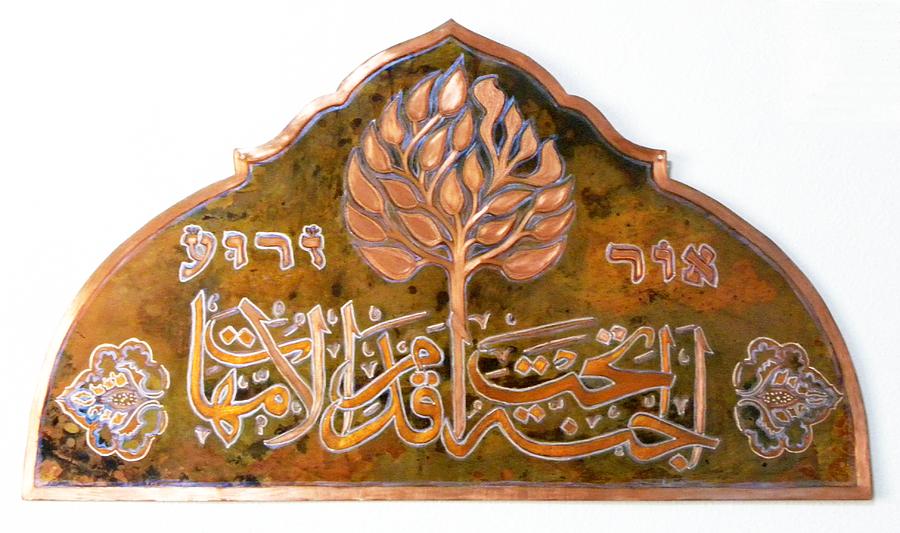 אור זרוע
الجنة تحت أقدام الامهات